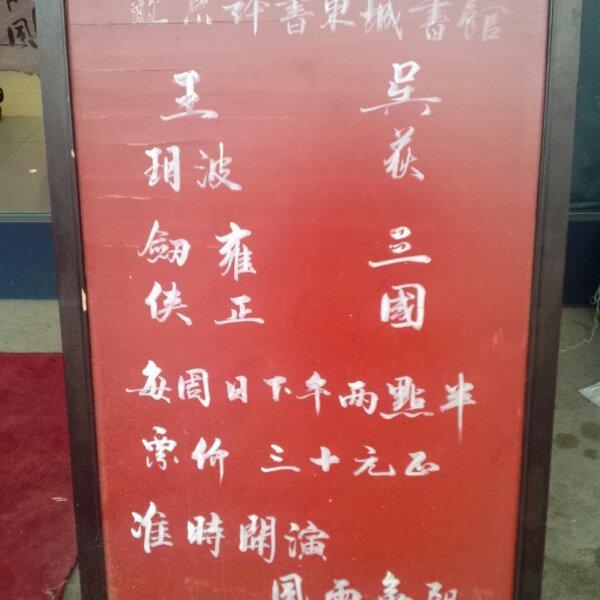 北京評書東城書館
王 吳
玥波 荻
劍 雍 三
俠 正 國
每周日下午兩點半
票价 三十元正
准時開演
風雨無阻